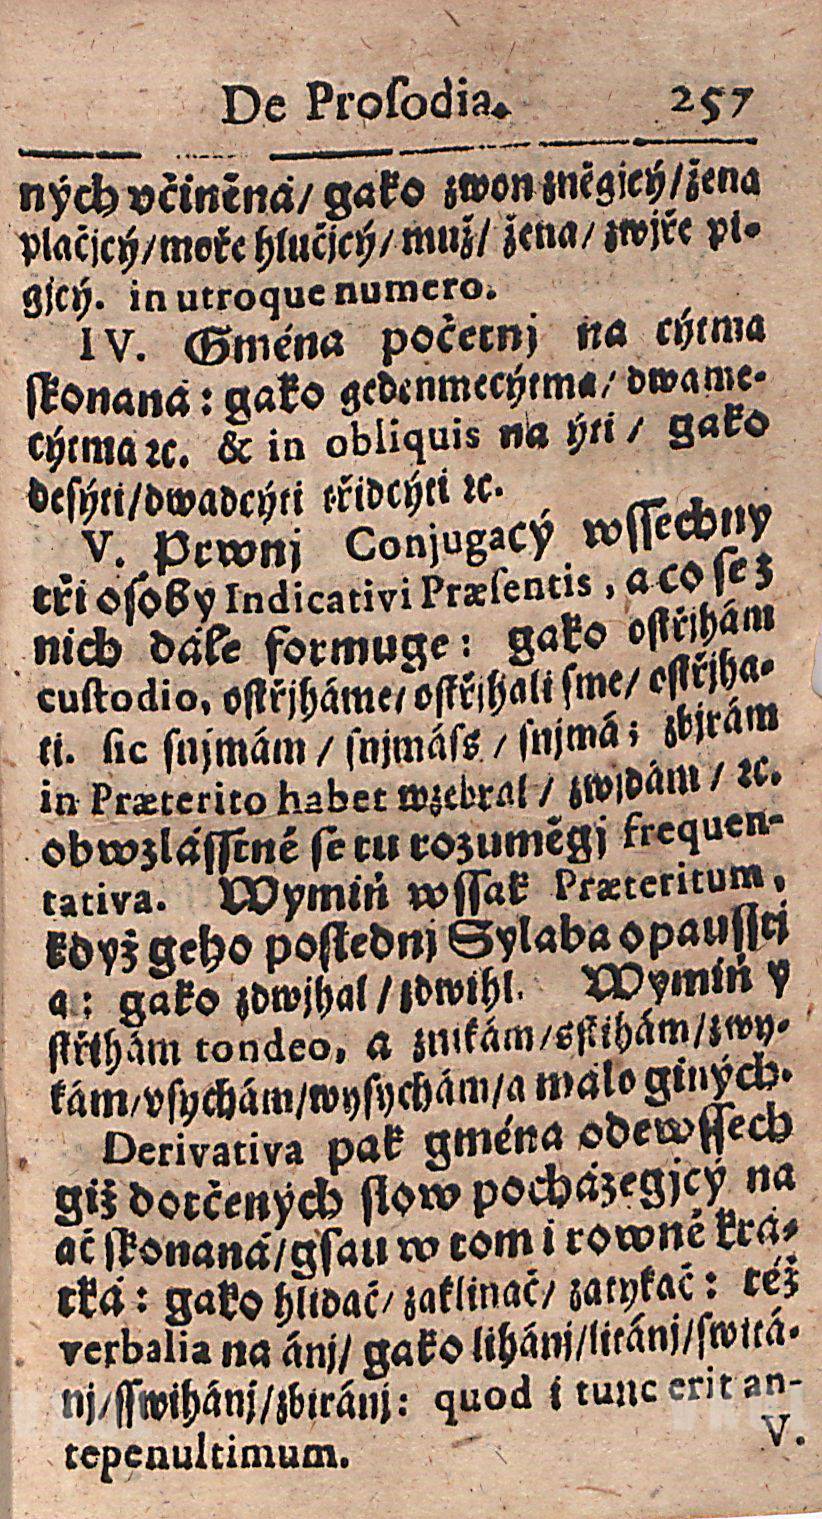 De Proſodia. 257
ných včiněná/ gako zwon zněgjcý/žena
plačjcý/moře hlučjcý/ muž/ žena/ zwjře pi-
gjcý. in utroque numero.
IV. Gména početnj na cýtma
ſkonaná: gako gedenmecýtma/ dwame-
cýtma ꝛc. & in obliquis na ýti / gako
deſýti/dwadcýti třidcýti ꝛc.
V. Prwnj Conjugacý wſſechny
tři oſoby Indicativi Præſentis, a co ſe z
nich dále formuge: gako oſtřjhám
cuſtodio, oſtřjháme/ oſtřjhali ſme/ oſtřjha-
ti. ſic ſnjmám / ſnjmáſs / ſnjmá; zbjrám
in Præterito habet wzebral / zwjdám / ꝛc.
obwzláſſtně ſe tu rozuměgj frequen-
tativa. Wymiň wſſak Præteritum,
když geho poſlednj Sylaba opauſſtj
a: gako zdwjhal / zdwihl. Wymiň y
ſtřihám tondeo, a znikám/sſtihám/zwy-
kám/vſychám/wyſychám/a málo giných.
Derivativa pak gména odewſſech
giž dotčených ſlow pocházegjcý na
ač ſkonaná/gſau w tom i rowně krá-
tká: gako hlidač/ zaklinač/ zatykač: též
verbalia na ánj/ gako lihánj/litánj/ſwitá-
nj/ſſwihánj/zbiránj: quod i tunc erit an-
tepenultimum.
V.